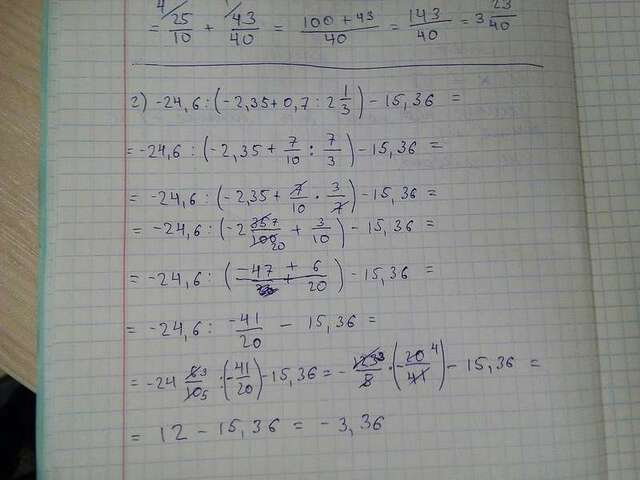 4 1
= 25/10 + 43/40 = (100 + 43)/40 = 143/40 = 3 23/40
2) -24,6 : (-2,35 + 0,7 : 2 1/3) - 15,36 =
= -24,6 : (-2,35 + 7/10 : 7/3) - 15,36 =
= -24,6 : (-2,35 + 7/10 · 3/7) - 15,36 =
= -24,6 : (-2 35 7/100 20 + 3/10) - 15,36 =
= -24,6 : ((-47 + 6)/20) - 15,36 =
= -24,6 : -41/20 - 15,36 =
= -24 6 3/10 5 : (-41/20) - 15,36 = - 123 3/5 · (-20 4/41) - 15,36 =
= 12 - 15,36 = -3,36